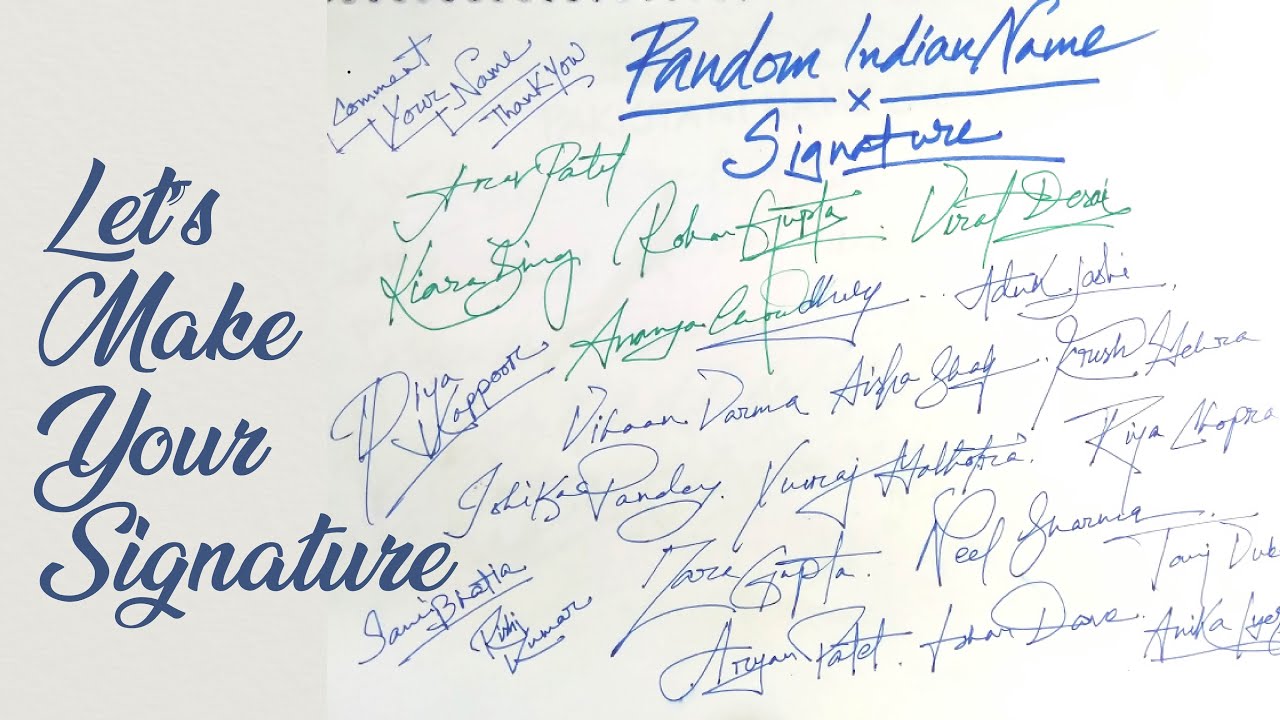 Let's
Make
Your
Signature
Comment
Your Name
Thank You
Random Indian Name
x
Signature
Arav Patel
Kiara Sing
Rohan Gupta
Virat Desai
Ananya Choudhury
Joshi
Diya
Kappoor
Vihaan Varma
Aisha Shah
Krush Mehra
Ishika Pandey
Yuvraj Malhotra
Riya Chopra
Zara Gupta
Neel Sharma
Bhatia
Rishi
Kumar
Aryan Patel
Ishan Dave
Anika Iyer